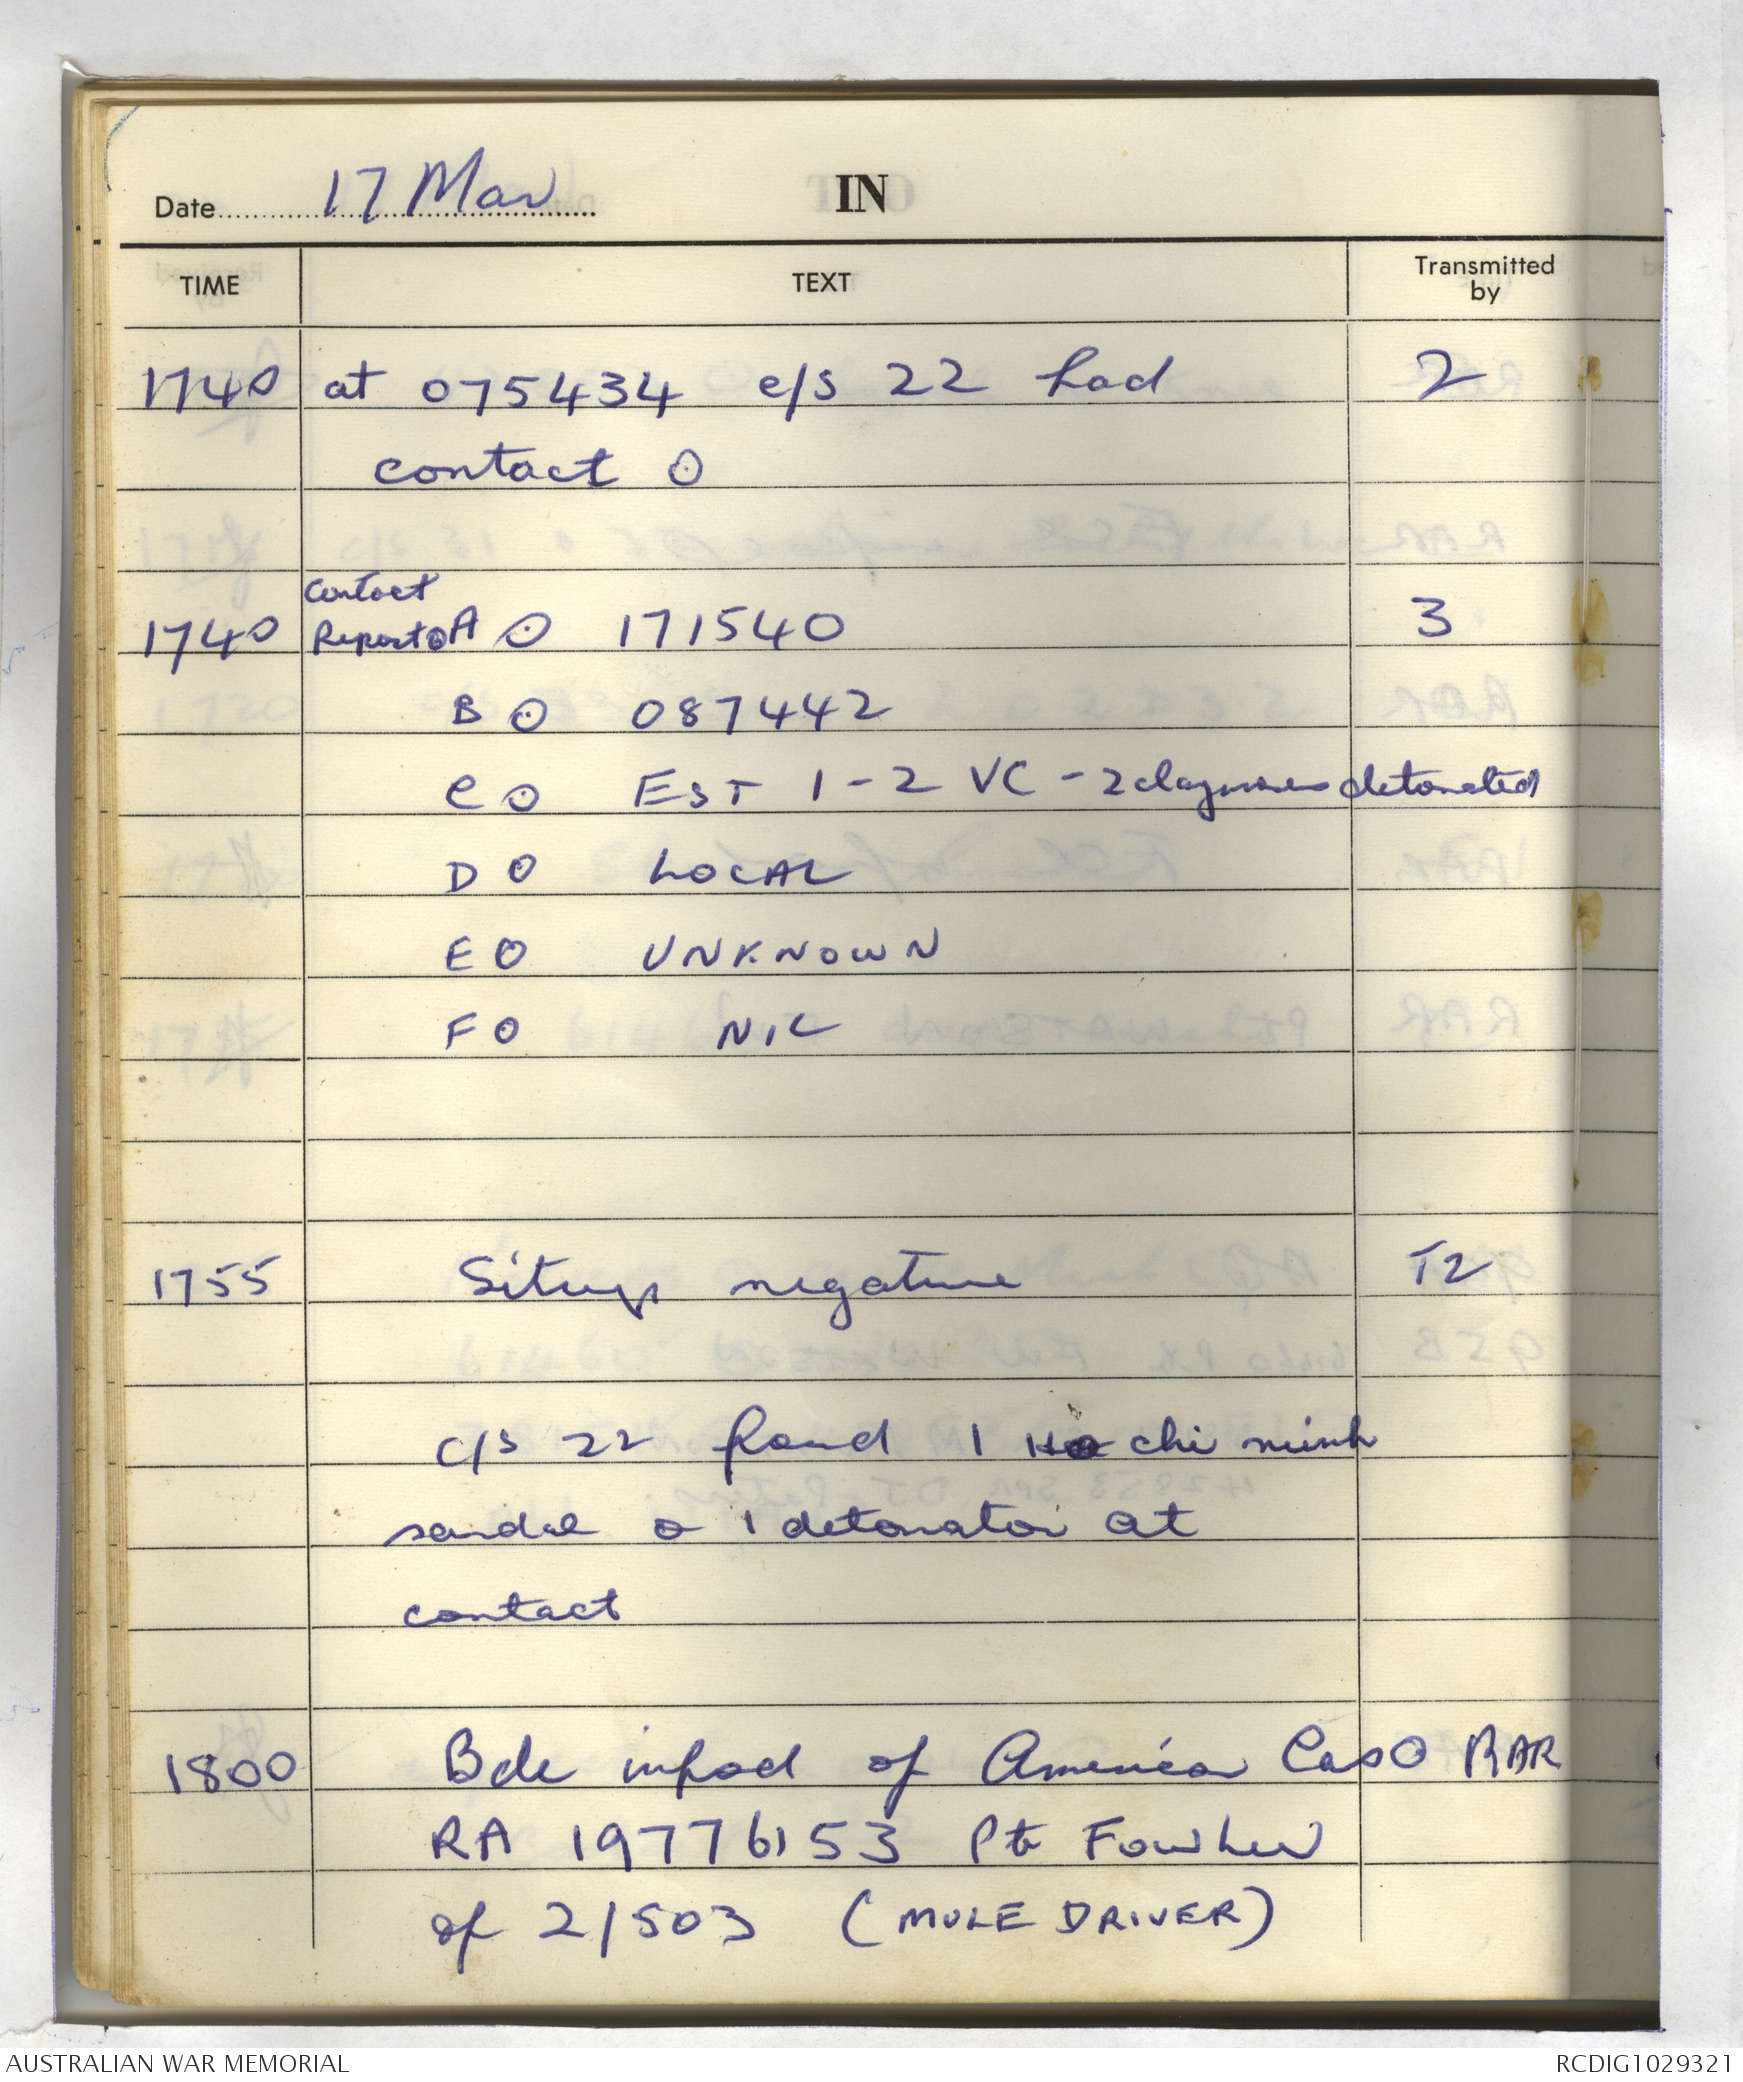 Date 17 Mar IN
TIME TEXT Transmitted by
1740 at 075434 c/s 22 had 2
contact ⊙
1740 Contact Report ⊙ A ⊙ 171540 3
B ⊙ 087442
C ⊙ EST 1-2 VC - 2 claymores detonated
D ⊙ LOCAL
E ⊙ UNKNOWN
F ⊙ NIL
1755 Sitreps negative T2
C/S 22 found 1 Ho chi minh
sandal & 1 detonator at
contact
1800 Bde infod of America Cas ⊙ RAR
RA 19776153 Pte Fowler
of 2/503 (MULE DRIVER)
AUSTRALIAN WAR MEMORIAL RCDIG1029321